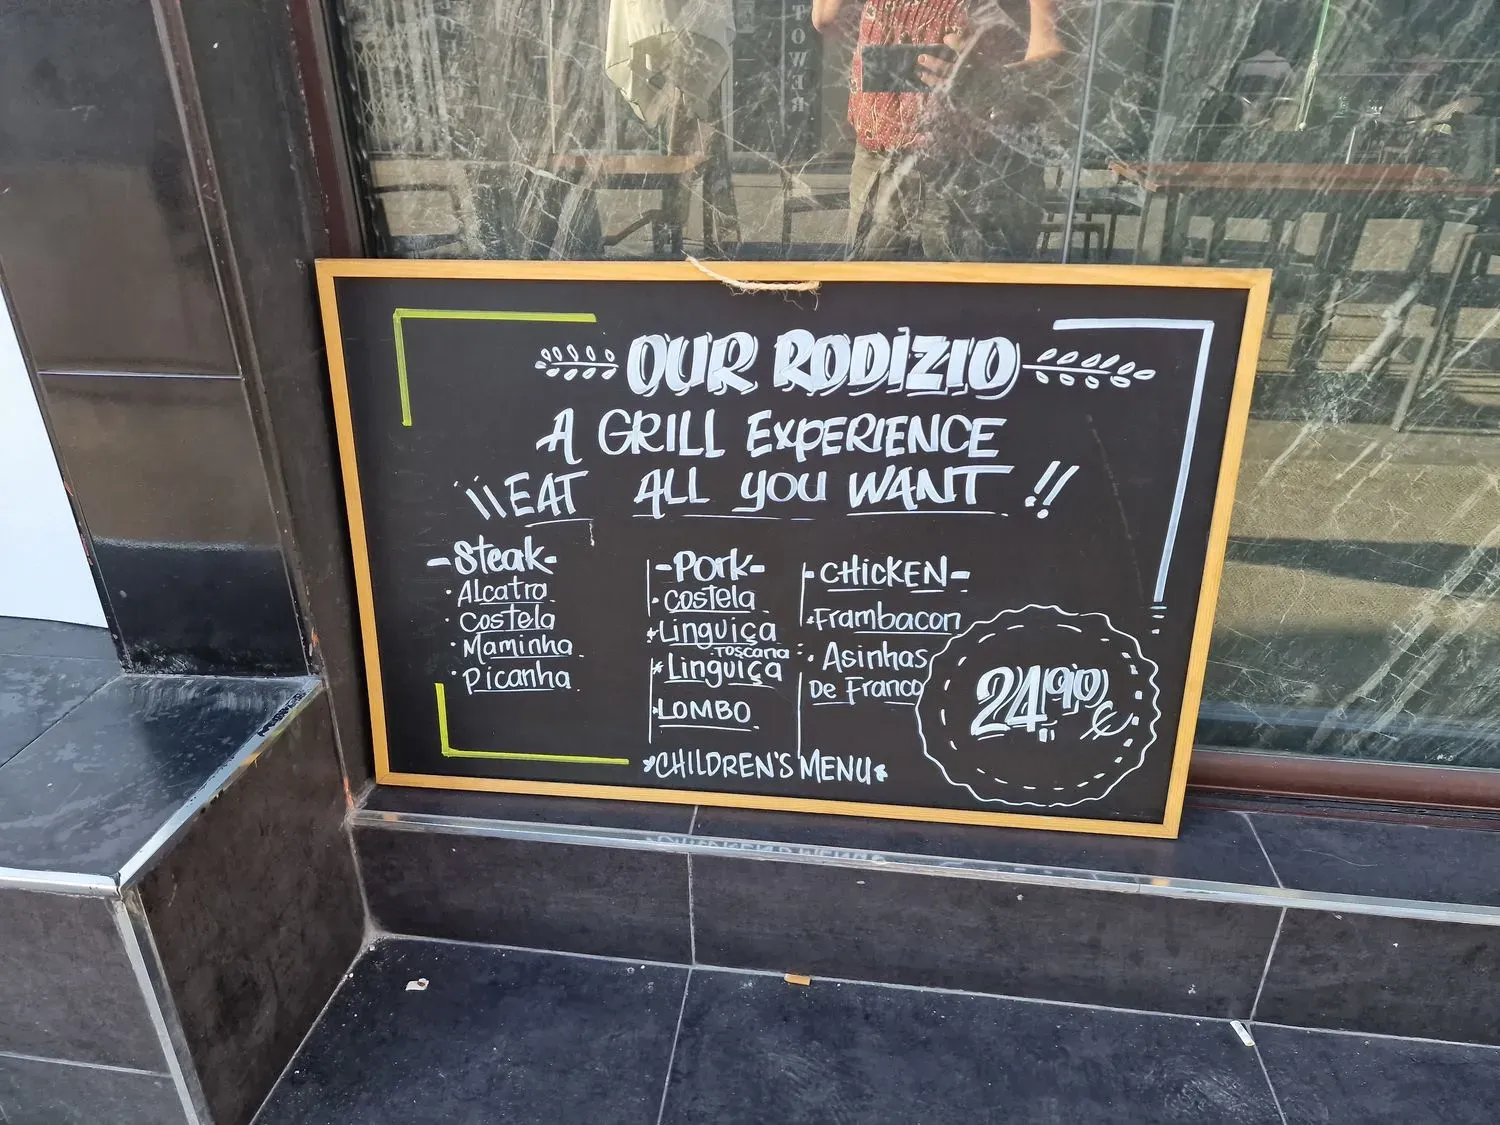 TOWER
OUR RODÍZIO
A GRILL EXPERIENCE
¡¡EAT ALL YOU WANT!!
-Steak-
· Alcatra
· Costela
· Maminha
· Picanha
-Pork-
· Costela
· Linguiça
Toscana
· Linguiça
· LOMBO
-CHICKEN-
· Frambacon
· Asinhas
De Franco
24,90€
*CHILDREN'S MENU*